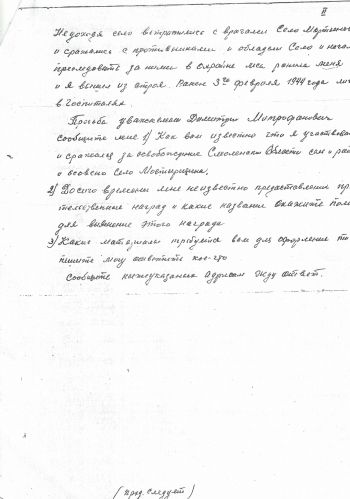 II
Недоходя село встретились с врагами Село Мартын
и сражались с противниками и овладели Село и нача
преследовать за ними в окраине леса ранило меня
и я вышел из строя. Ранен 3го февраля 1944 года
в Госпиталях.
Просьба уважаемый Димитрий Митрофанович
сообщите мне 1) Как вам известно что я участвова
и сражался за освобождение Смоленской Области
и особенно Село
2) До сего времени мне неизвестно предоставлении
наград и какие название окажите пом
для выяснение этого награда
3) Какие материалы требуется вам для оформление
пишите могу осветить кое-что
сообщите нижеуказанным Адресам Жду ответ.
(прод. следует)